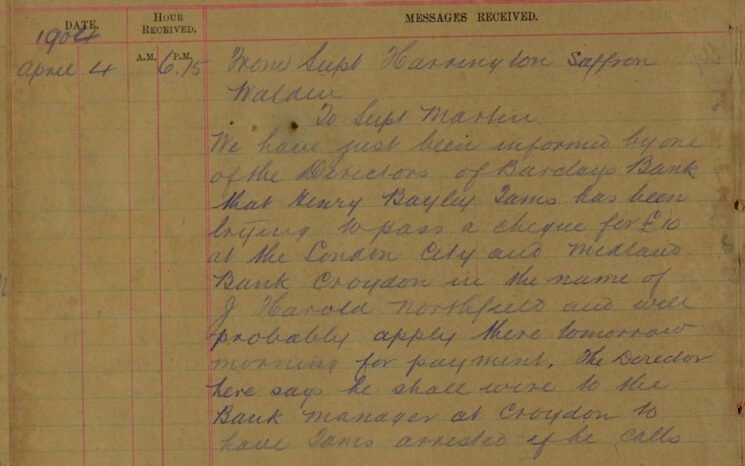 DATE. HOUR RECEIVED. MESSAGES RECEIVED.
1904 A.M. P.M.
April 4 6.15 From Supt Harrington Saffron
Walden
To Supt Martin
We have just been informed by one
of the Directors of Barclays Bank
that Henry Bayley Tams has been
trying to pass a cheque for £10
at the London City and Midland
Bank Croydon in the name of
J Harold Northfield and will
probably apply there tomorrow
morning for payment. The Director
here says he shall wire to the
Bank Manager at Croydon to
have Tams arrested if he calls